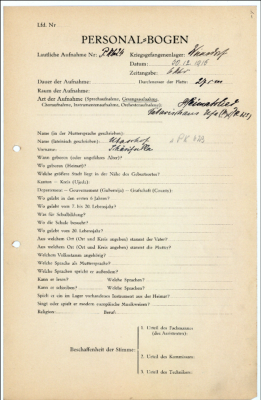 Lfd. Nr
PERSONAL-BOGEN
Lautliche Aufnahme Nr.: Kriegsgefangenenlager:
Datum: 1916
Zeitangabe:
Dauer der Aufnahme: Durchmesser der Platte: 27 cm
Raum der Aufnahme:
Art der Aufnahme (Sprechaufnahme, Gesangsaufnahme,
Choraufnahme, Instrumentenaufnahme, Orchesteraufnahme):
Name (in der Muttersprache geschrieben):
Name (lateinisch geschrieben):
Vorname:
Wann geboren (oder ungefähres Alter)?
Wo geboren (Heimat)?
Welche größere Stadt liegt in der Nähe des Geburtsortes?
Kanton — Kreis (Ujedz):
Departement — Gouvernement (Gubernija) — Grafschaft (County):
Wo gelebt in den ersten 6 Jahren?
Wo gelebt vom 7. bis 20. Lebensjahr?
Was für Schulbildung?
Wo die Schule besucht?
Wo gelebt vom 20. Lebensjahr?
Aus welchem Ort (Ort und Kreis angeben) stammt der Vater?
Aus welchem Ort (Ort und Kreis angeben) stammt die Mutter?
Welchem Volksstamm angehörig?
Welche Sprache als Muttersprache?
Welche Sprachen spricht er außerdem?
Kann er lesen? Welche Sprachen?
Kann er schreiben? Welche Sprachen?
Spielt er ein im Lager vorhandenes Instrument aus der Heimat?
Singt oder spielt er modern europäische Musikweisen?
Religion: Beruf:
Beschaffenheit der Stimme:
1. Urteil des Fachmanns:
(des Assistenten):
2. Urteil des Kommissars:
3. Urteil des Technikers: